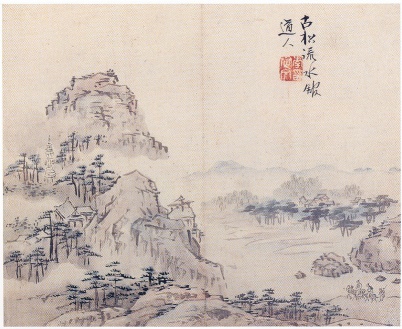 古松流水館
道人